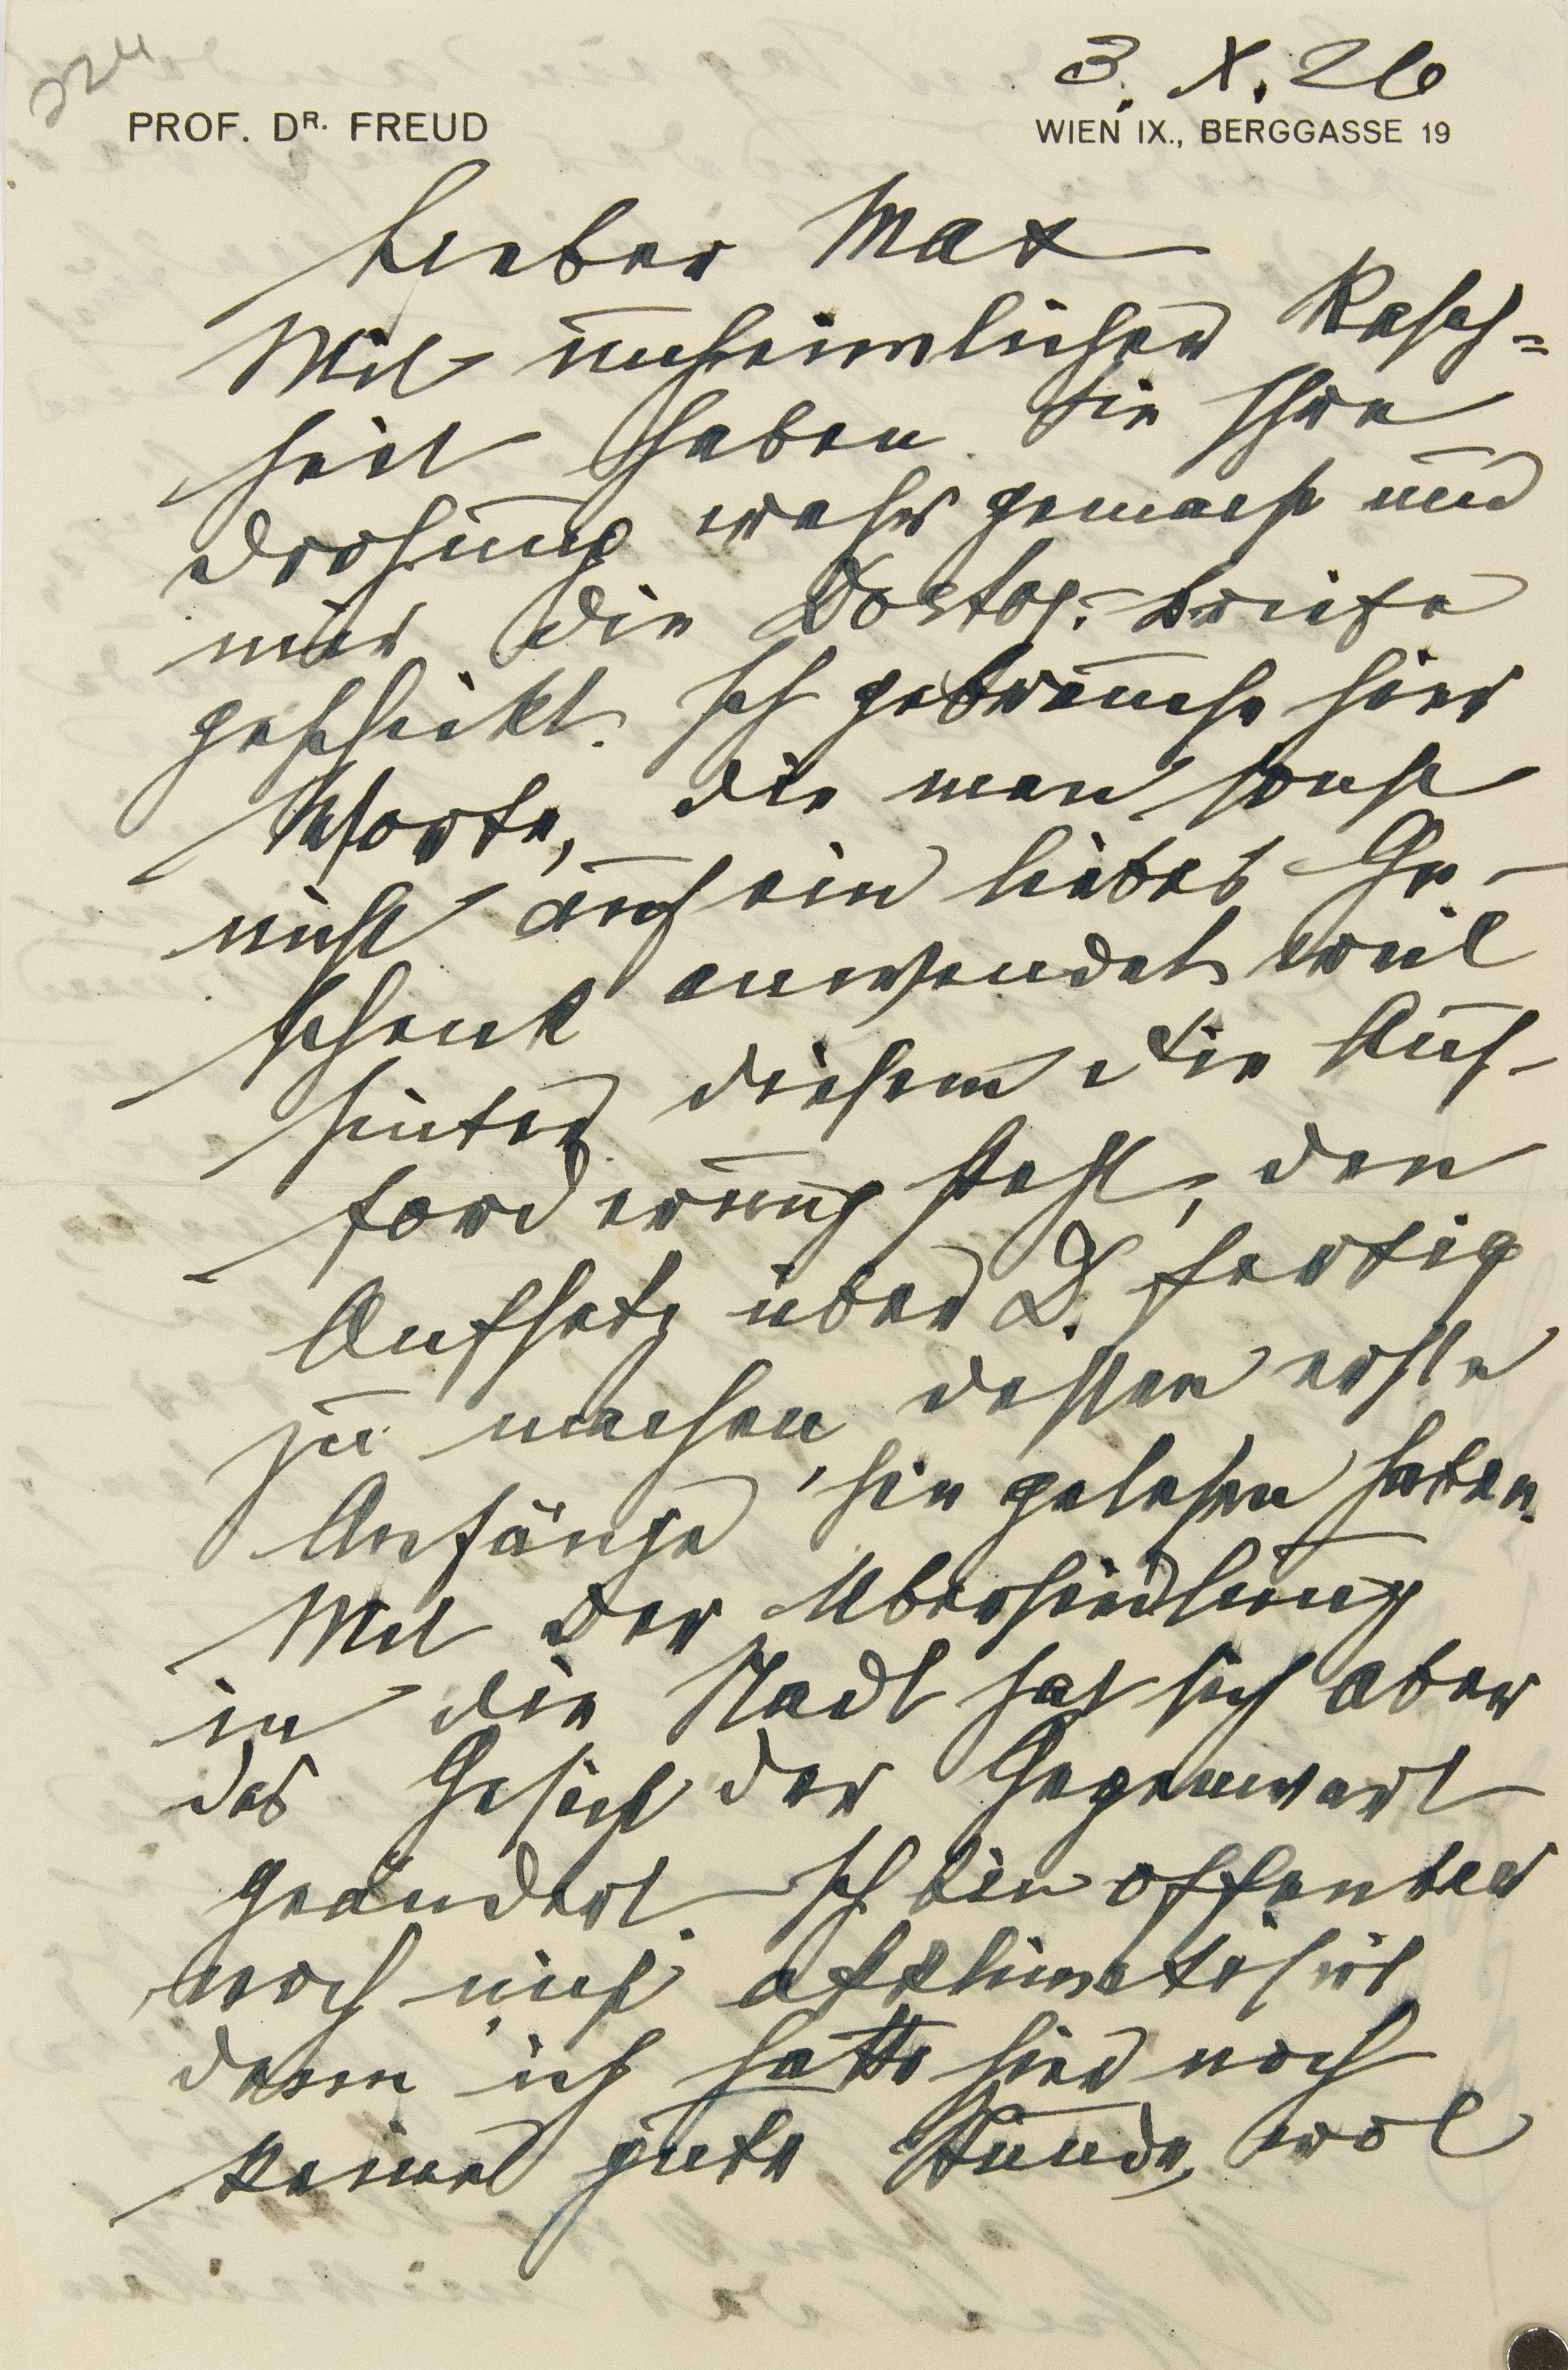 224
3. X. 26
PROF. DR. FREUD
WIEN IX., BERGGASSE 19
Lieber Max
Mit unheimlicher Rasch-
heit haben Sie Ihre
Drohung wahr gemacht und
mir die Dostoj.-Briefe
geschickt. Ich gebrauche hier
Worte, die man sonst
nicht auf ein liebes Ge-
schenk anwendet, weil
hinter diesem die Auf-
forderung steht, den
Aufsatz über D. fertig
zu machen, dessen erste
Anfänge Sie gelesen haben.
Mit der Übersiedlung
in die Stadt hat sich aber
das Gesicht der Gegenwart
geändert. Ich bin offenbar
noch nicht akklimatisirt
denn ich hatte hier noch
keine gute Stunde, wol